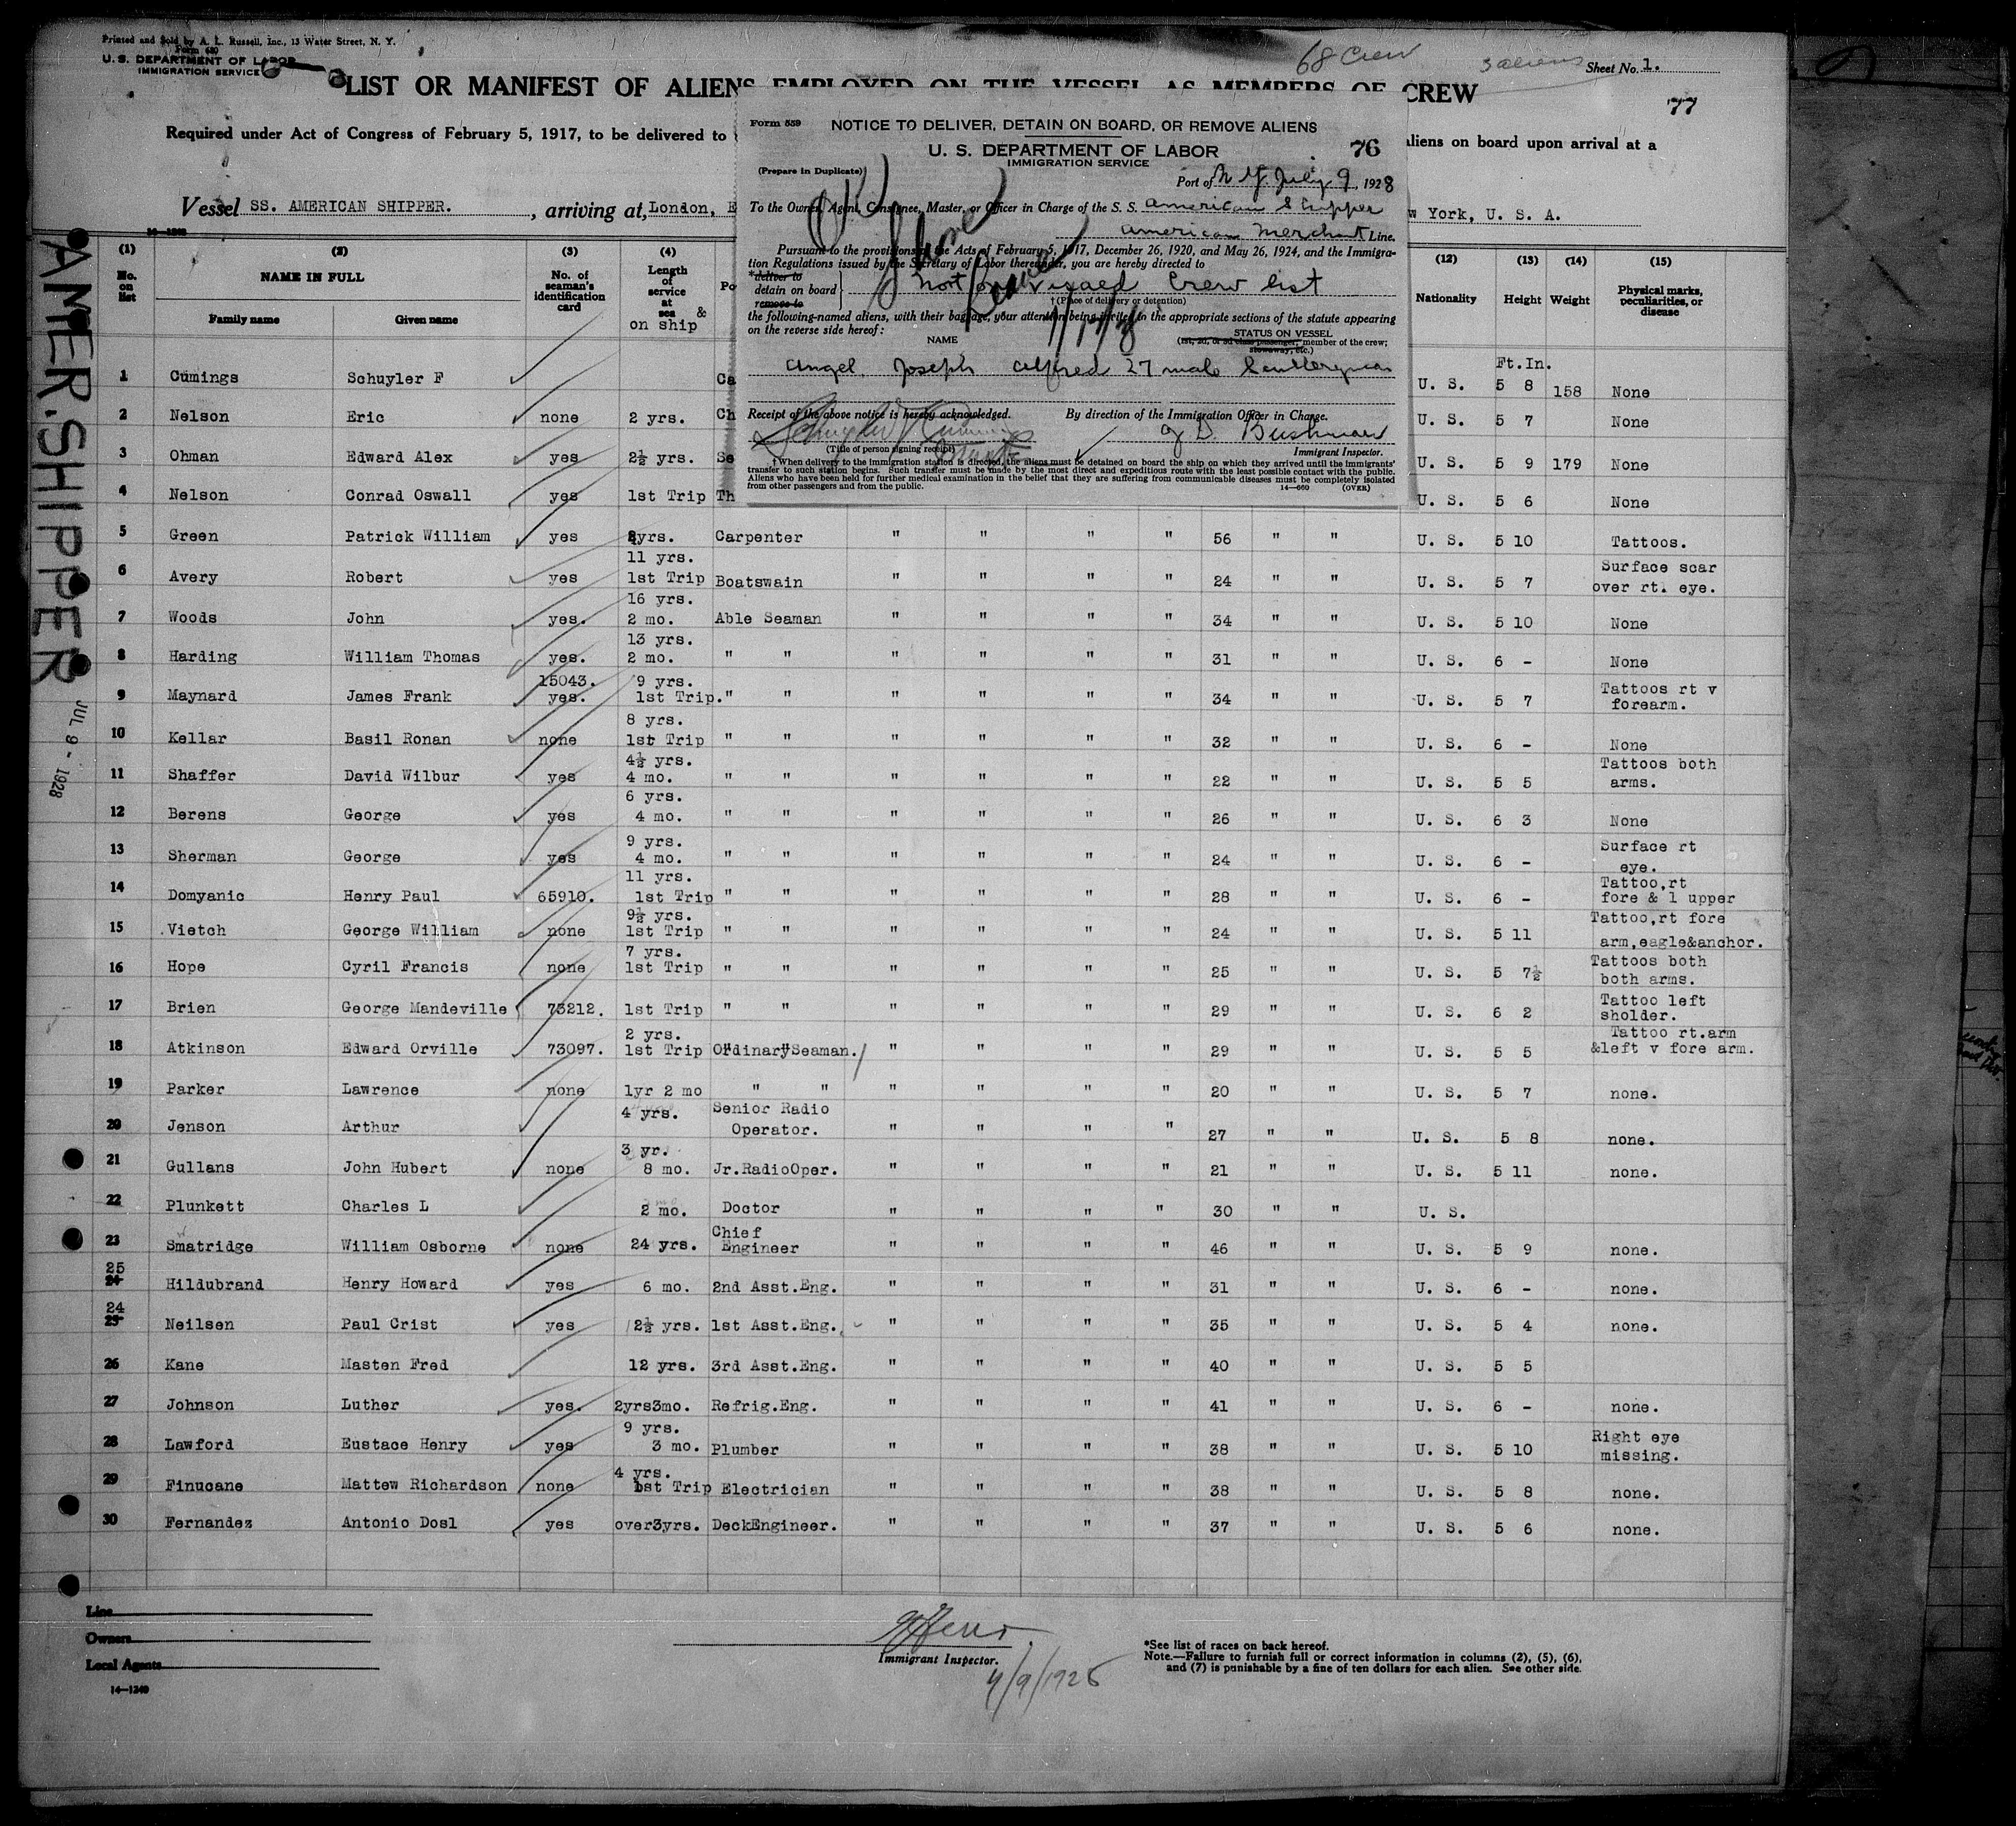 Printed and Sold by A. L. Russell, Inc., 13 Water Street, N. Y.
Form 680
U. S. DEPARTMENT OF LABOR
IMMIGRATION SERVICE
68 Crew
3 aliens
Sheet No. 1.
77
LIST OR MANIFEST OF ALIENS EMPLOYED ON THE VESSEL AS MEMBERS OF CREW
Required under Act of Congress of February 5, 1917, to be delivered to
aliens on board upon arrival at a
Vessel SS. AMERICAN SHIPPER. , arriving at, London, E
w York, U. S. A.
14-1240
AMER. SHIPPER
JUL 9 - 1928
Form 559
NOTICE TO DELIVER, DETAIN ON BOARD, OR REMOVE ALIENS
U. S. DEPARTMENT OF LABOR
IMMIGRATION SERVICE
76
(Prepare in Duplicate)
Port of N Y. July 9, 1928
To the Owner, Agent, Consignee, Master, or Officer in Charge of the S. S. American Shipper
American Merchant Line.
Pursuant to the provisions of the Acts of February 5, 1917, December 26, 1920, and May 26, 1924, and the Immigra-
tion Regulations issued by the Secretary of Labor thereunder, you are hereby directed to
*deliver to
detain on board
remove to
not on visaed Crew list
†(Place of delivery or detention)
the following-named aliens, with their baggage, your attention being invited to the appropriate sections of the statute appearing
on the reverse side hereof:
NAME
STATUS ON VESSEL
(1st, 2d, or 3d class passenger, member of the crew;
stowaway, etc.)
Angel Joseph Alfred 27 male Sculleryman
Receipt of the above notice is hereby acknowledged.
By direction of the Immigration Officer in Charge.
Schuyler F Cumings
(Title of person signing receipt)
J D. Bushman
Immigrant Inspector.
†When delivery to the immigration station is directed, the aliens must be detained on board the ship on which they arrived until the immigrants'
transfer to such station begins. Such transfer must be made by the most direct and expeditious route with the least possible contact with the public.
Aliens who have been held for further medical examination in the belief that they are suffering from communicable diseases must be completely isolated
from other passengers and from the public.
14-660 (OVER)
(1) (2) (3) (4) (12) (13) (14) (15)
No. on list
NAME IN FULL
Family name Given name
No. of seaman's identification card
Length of service at sea & on ship
Po
Nationality Height Weight Physical marks, peculiarities, or disease
Ft.In.
1 Cumings Schuyler F Ca U. S. 5 8 158 None
2 Nelson Eric none 2 yrs. Ch U. S. 5 7 None
3 Ohman Edward Alex yes 2½ yrs. Se U. S. 5 9 179 None
4 Nelson Conrad Oswall yes 1st Trip Th U. S. 5 6 None
5 Green Patrick William yes yrs. Carpenter " " " " 56 " " U. S. 5 10 Tattoos.
6 Avery Robert yes 11 yrs. 1st Trip Boatswain " " " " 24 " " U. S. 5 7 Surface scar over rt. eye.
7 Woods John yes. 16 yrs. 2 mo. Able Seaman " " " " 34 " " U. S. 5 10 None
8 Harding William Thomas yes. 13 yrs. 2 mo. " " " " " " 31 " " U. S. 6 - None
9 Maynard James Frank 15043. yes. 9 yrs. 1st Trip. " " " " " " 34 " " U. S. 5 7 Tattoos rt v forearm.
10 Kellar Basil Ronan none 8 yrs. 1st Trip " " " " " " 32 " " U. S. 6 - None
11 Shaffer David Wilbur yes 4½ yrs. 4 mo. " " " " " " 22 " " U. S. 5 5 Tattoos both arms.
12 Berens George yes 6 yrs. 4 mo. " " " " " " 26 " " U. S. 6 3 None
13 Sherman George yes 9 yrs. 4 mo. " " " " " " 24 " " U. S. 6 - Surface rt eye.
14 Domyanic Henry Paul 65910. 11 yrs. 1st Trip " " " " " " 28 " " U. S. 6 - Tattoo,rt fore & l upper
15 Vietch George William none 9½ yrs. 1st Trip " " " " " " 24 " " U. S. 5 11 Tattoo,rt fore arm,eagle&anchor.
16 Hope Cyril Francis none 7 yrs. 1st Trip " " " " " " 25 " " U. S. 5 7½ Tattoos both both arms.
17 Brien George Mandeville 73212. 1st Trip " " " " " " 29 " " U. S. 6 2 Tattoo left sholder.
18 Atkinson Edward Orville 73097. 2 yrs. 1st Trip OrdinarySeaman. " " " " 29 " " U. S. 5 5 Tattoo rt.arm &left v fore arm.
19 Parker Lawrence none 1yr 2 mo " " " " " " 20 " " U. S. 5 7 none.
20 Jenson Arthur 4 yrs. Senior Radio Operator. " " " " 27 " " U. S. 5 8 none.
21 Gullans John Hubert none 3 yr. 8 mo. Jr.RadioOper. " " " " 21 " " U. S. 5 11 none.
22 Plunkett Charles L 2 mo. Doctor " " " " 30 " " U. S.
23 Smatridge William Osborne none 24 yrs. Chief Engineer " " " " 46 " " U. S. 5 9 none.
25 24 Hildubrand Henry Howard yes 6 mo. 2nd Asst.Eng. " " " " 31 " " U. S. 6 - none.
24 25 Neilsen Paul Crist yes 2½ yrs. 1st Asst.Eng. " " " " 35 " " U. S. 5 4 none.
26 Kane Masten Fred 12 yrs. 3rd Asst.Eng. " " " " 40 " " U. S. 5 5
27 Johnson Luther yes. 2yrs3mo. Refrig.Eng. " " " " 41 " " U. S. 6 - none.
28 Lawford Eustace Henry yes 9 yrs. 3 mo. Plumber " " " " 38 " " U. S. 5 10 Right eye missing.
29 Finucane Mattew Richardson none 4 yrs. 1st Trip Electrician " " " " 38 " " U. S. 5 8 none.
30 Fernandez Antonio Dosl yes over3yrs. DeckEngineer. " " " " 37 " " U. S. 5 6 none.
Line
Owners
Local Agents
14-1240
Immigrant Inspector.
7/9/1928
*See list of races on back hereof.
Note.—Failure to furnish full or correct information in columns (2), (5), (6),
and (7) is punishable by a fine of ten dollars for each alien. See other side.